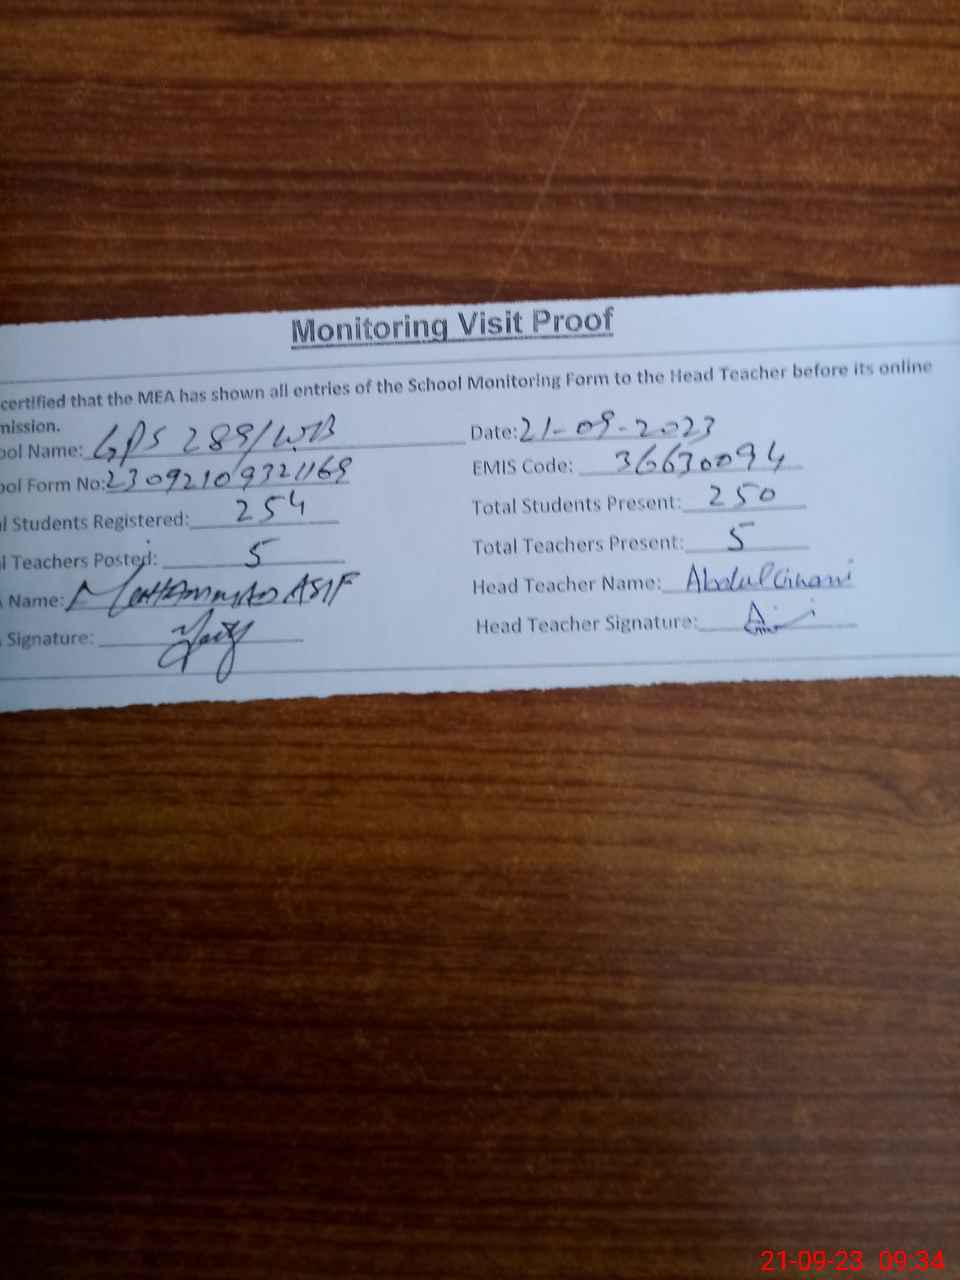 Monitoring Visit Proof
certified that the MEA has shown all entries of the School Monitoring Form to the Head Teacher before its online
mission.
ool Name: GPS 289/WB Date: 21-09-2023
ool Form No: 23092109321169 EMIS Code: 36630094
l Students Registered: 254 Total Students Present: 250
l Teachers Posted: 5 Total Teachers Present: 5
Name: MUHAMMAD ASIF Head Teacher Name: Abdul Ghani
Signature: Head Teacher Signature:
21-09-23 09:34